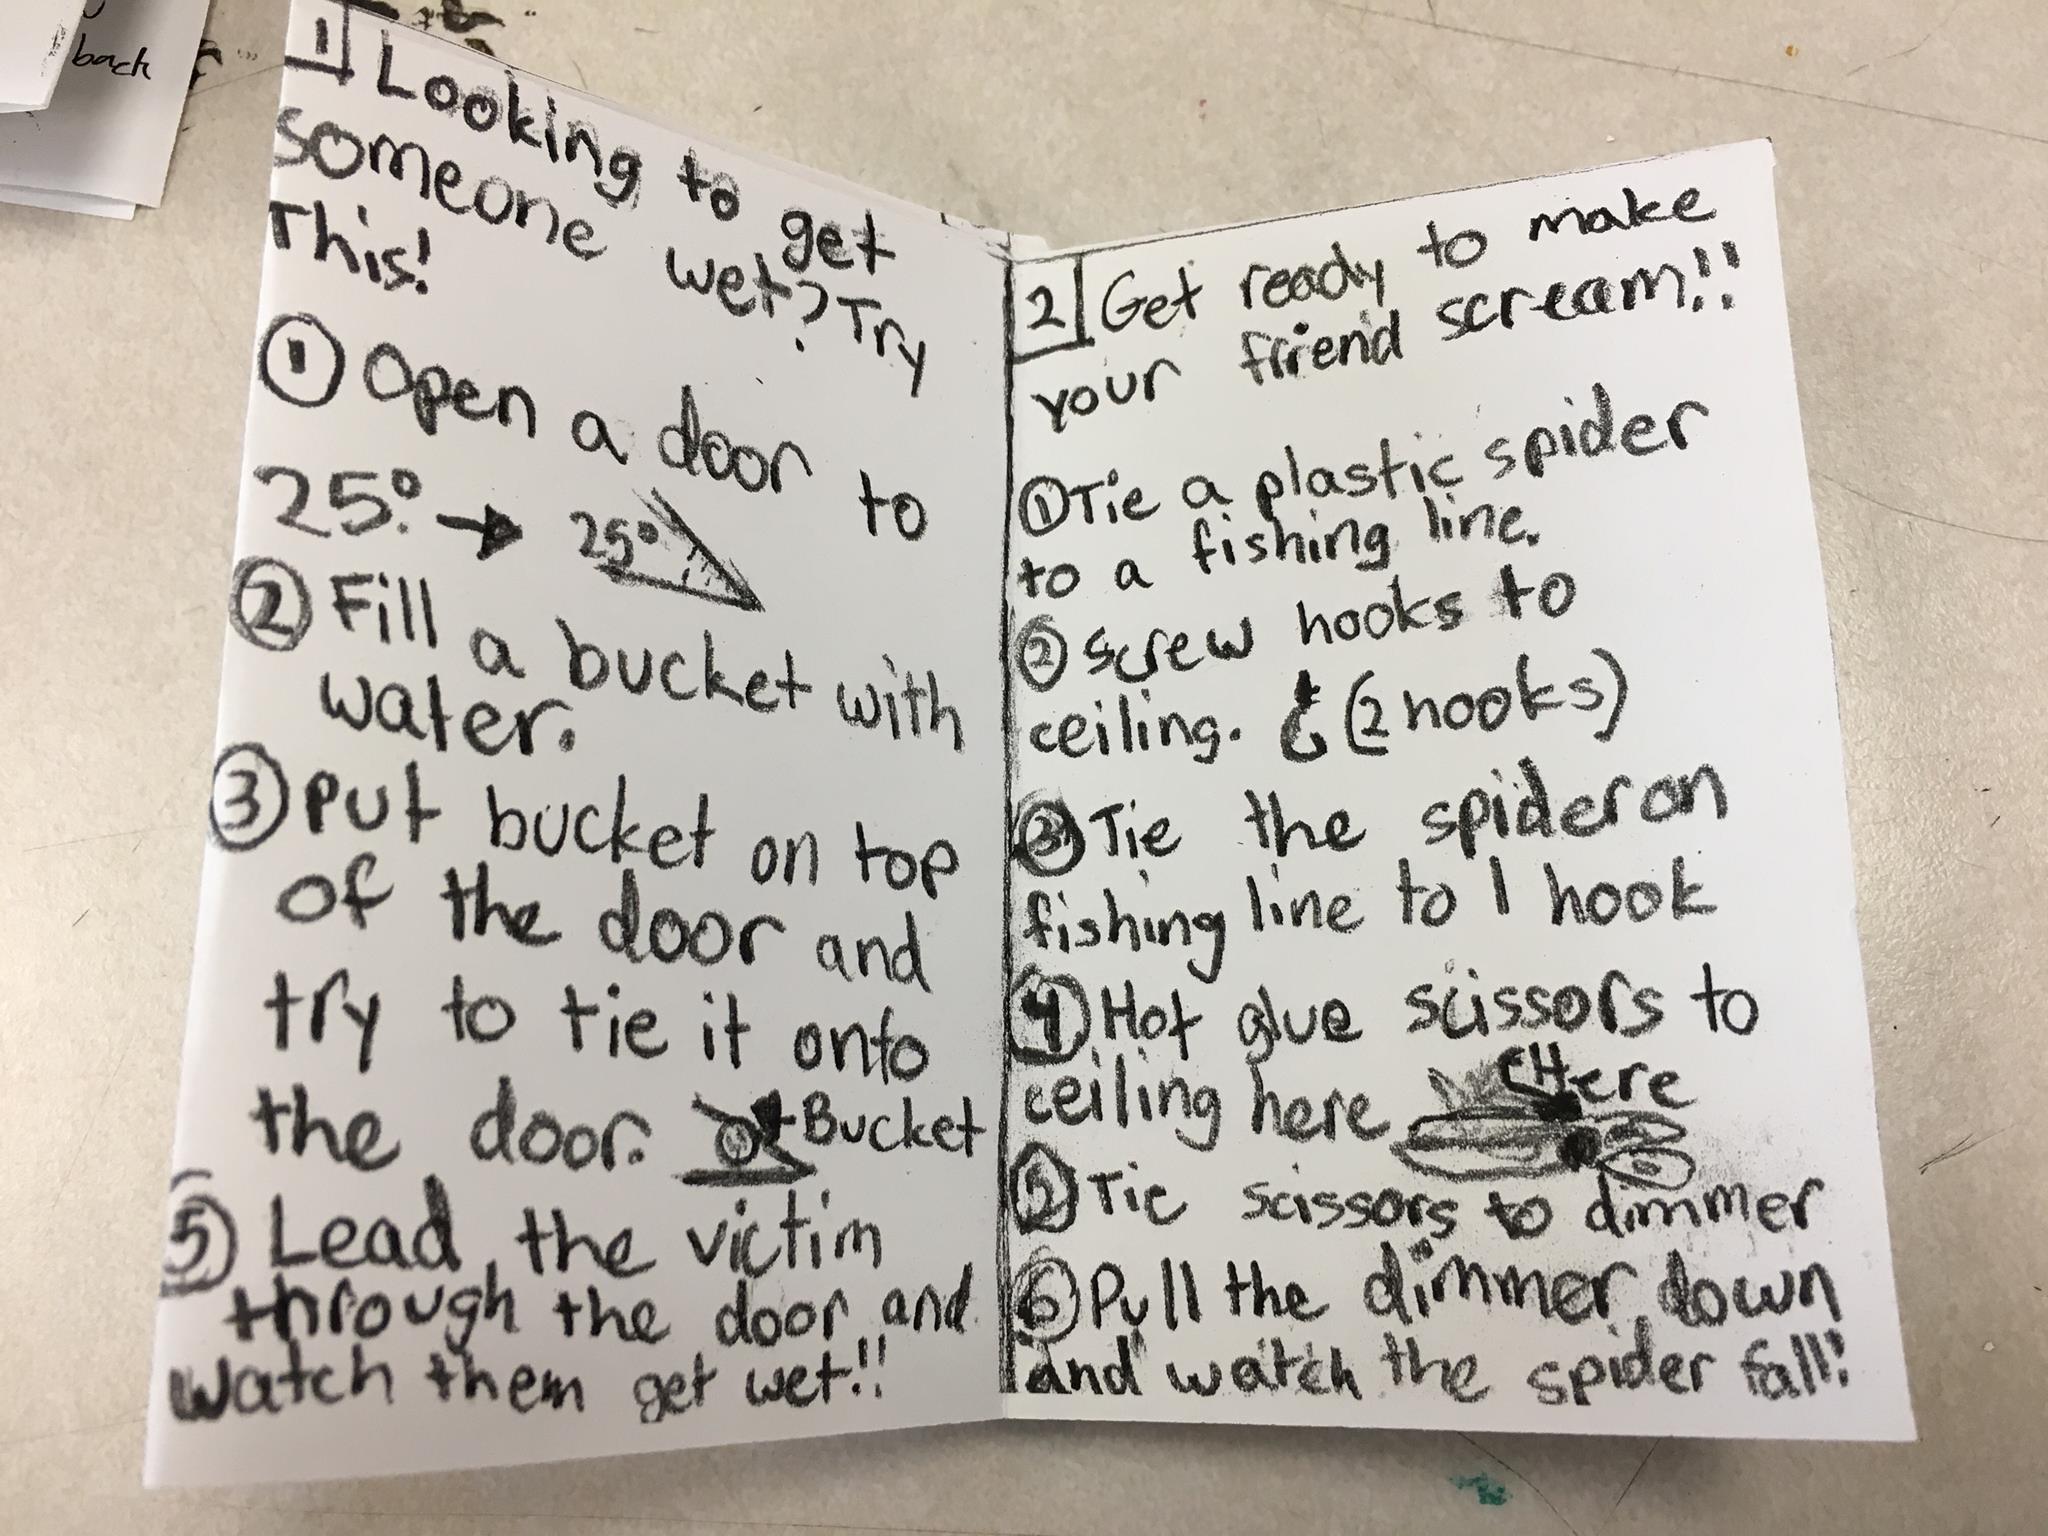 back
1 Looking to get
someone wet? Try
This!
① Open a door to
25°. → 25°
② Fill a bucket with
water.
③ Put bucket on top
of the door and
try to tie it onto
the door. Bucket
⑤ Lead the victim
through the door and
watch them get wet!!
2 Get ready to make
your friend scream!!
① Tie a plastic spider
to a fishing line.
② Screw hooks to
ceiling. (2 hooks)
③ Tie the spider on
fishing line to 1 hook
④ Hot glue scissors to
ceiling here Here
⑤ Tie scissors to dimmer
⑥ Pull the dimmer down
and watch the spider fall!!